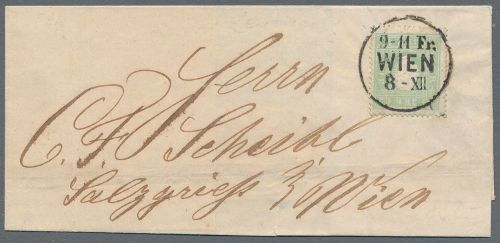 9-11 Fr.
WIEN
8 - XII
Herrn
C. F. Scheibl
Salzgries
Wien